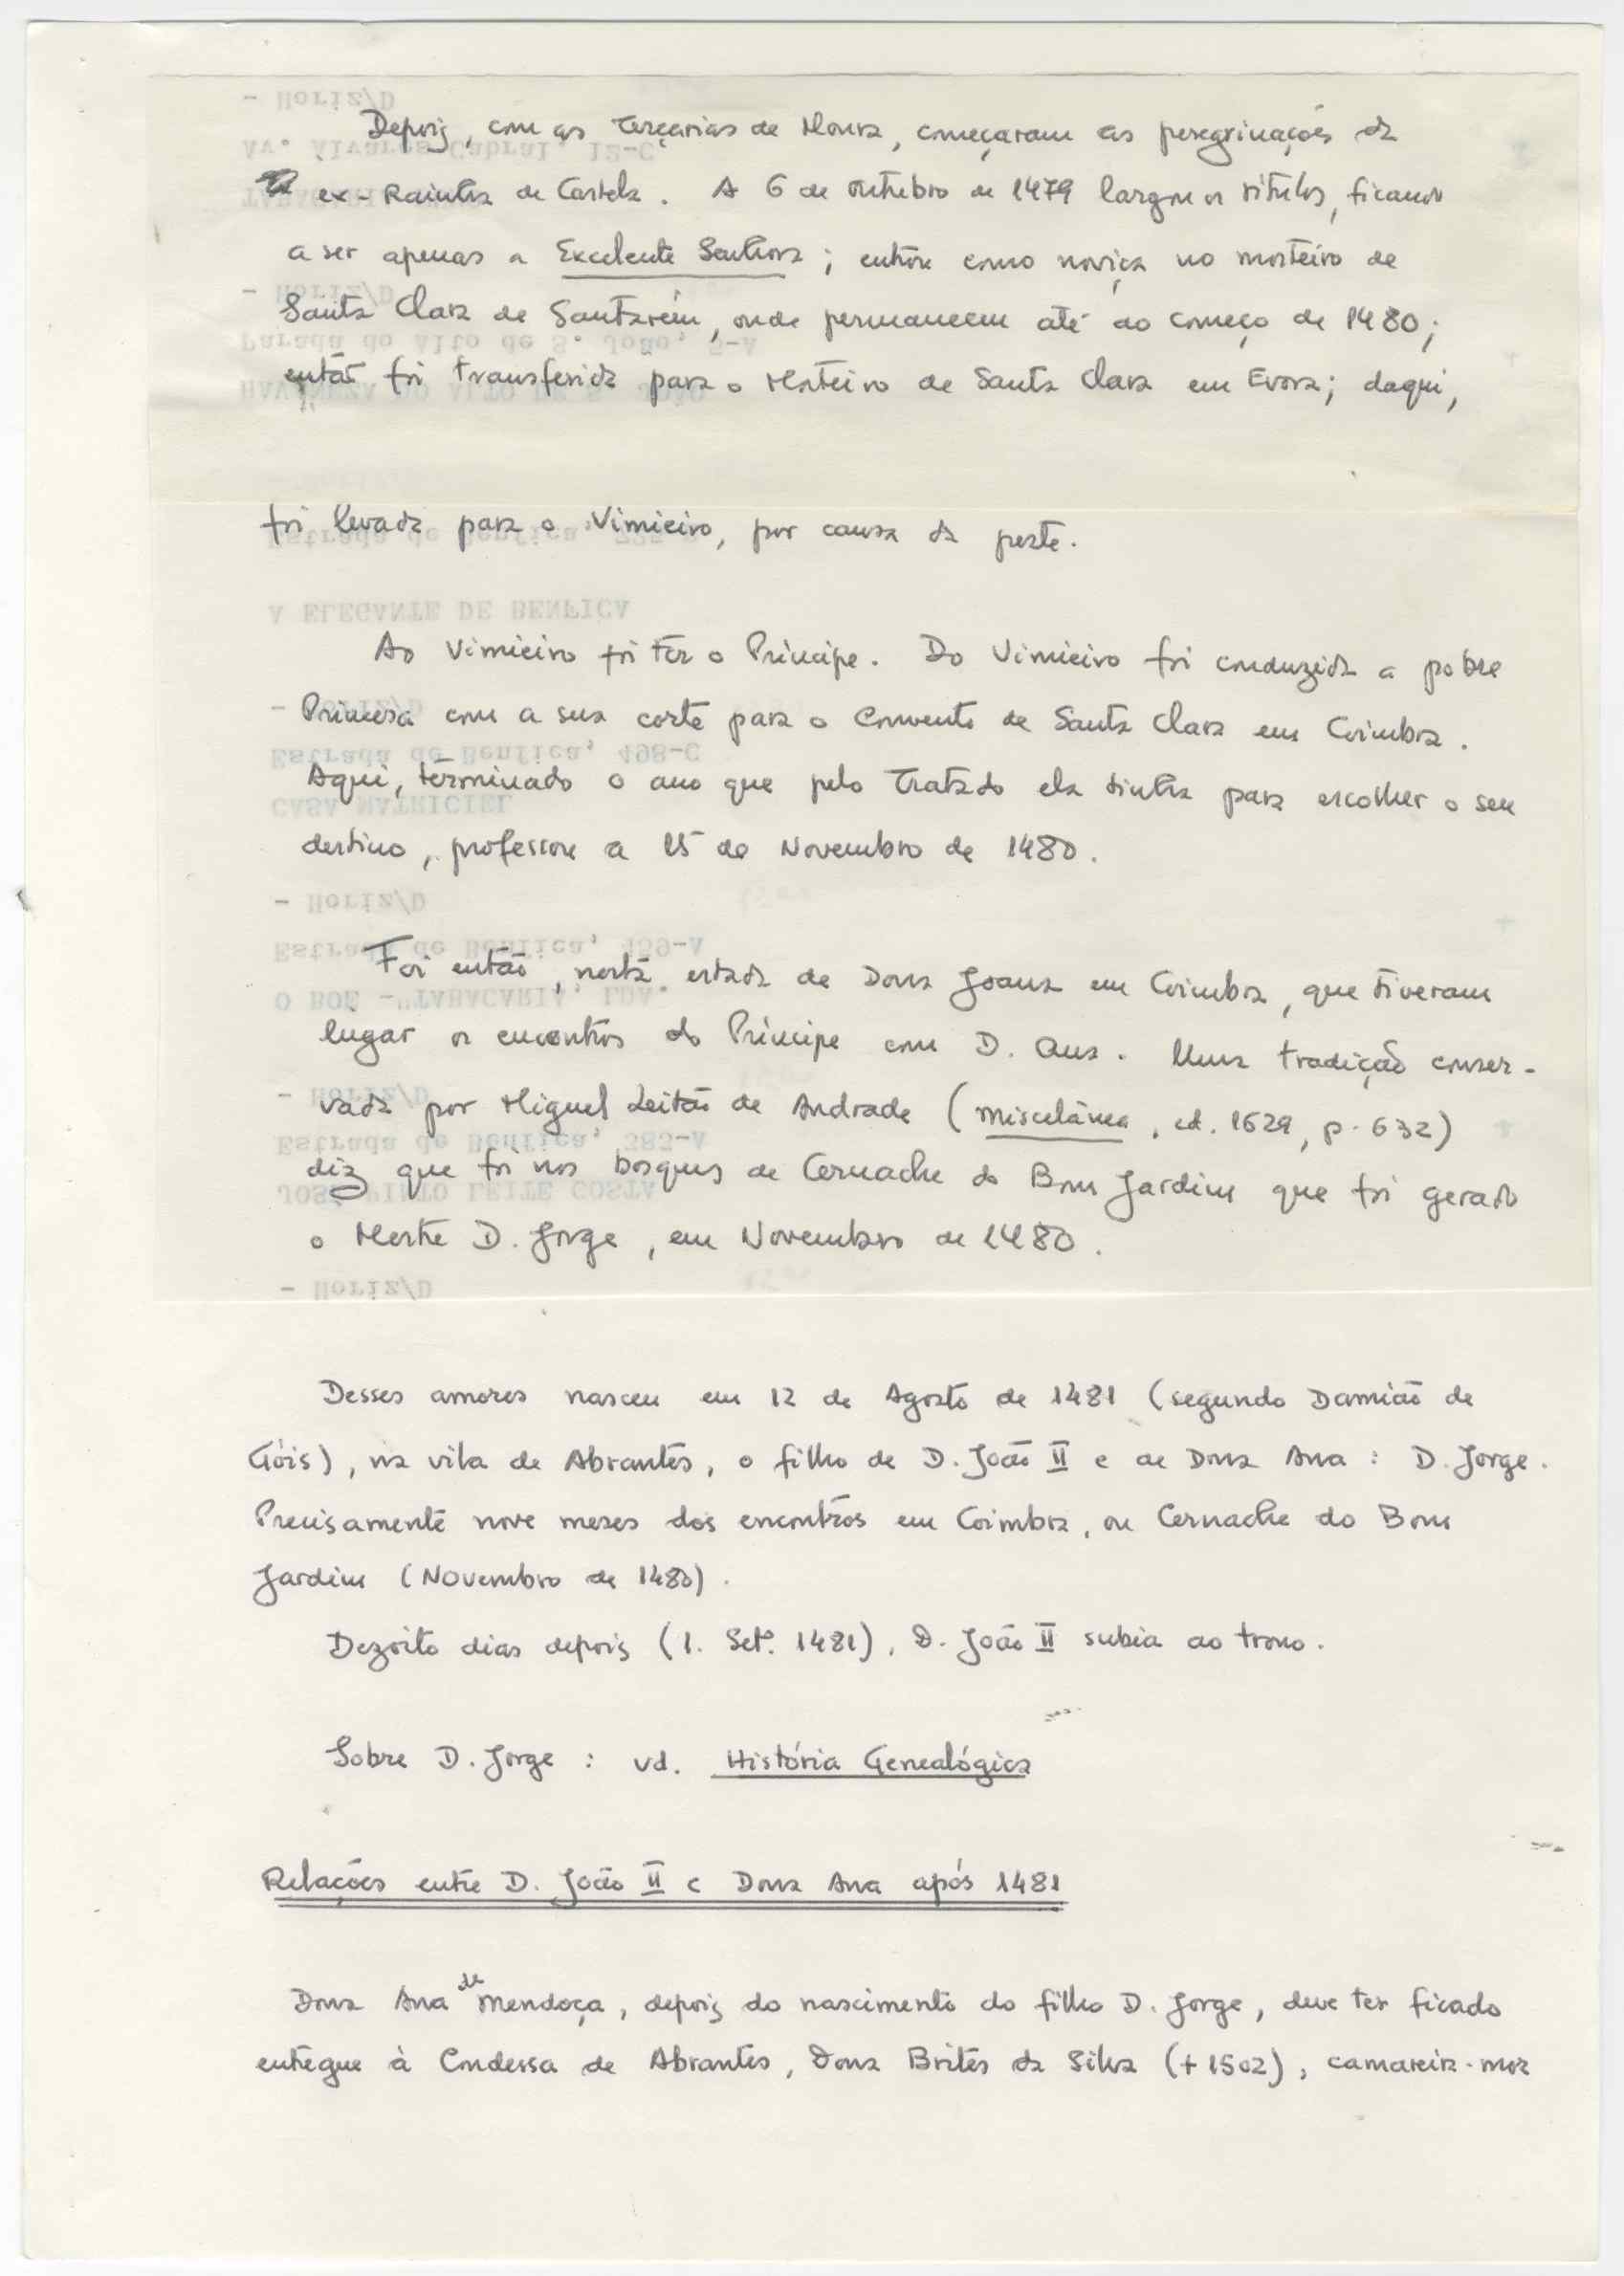 Depois, com as Terçarias de Moura, começaram as peregrinações da
ex-Rainha de Castela. A 6 de outubro de 1479 largou os títulos, ficando
a ser apenas a Excelente Senhora; entrou como noviça no mosteiro de
Santa Clara de Santarém, onde permaneceu até ao começo de 1480;
então foi transferida para o Mosteiro de Santa Clara em Evora; daqui,
foi levada para o Vimieiro, por causa da peste.
Ao Vimieiro foi ter o Príncipe. Do Vimieiro foi conduzida a pobre
Princesa com a sua corte para o Convento de Santa Clara em Coimbra.
Aqui, terminado o ano que pelo Tratado ela tinha para escolher o seu
destino, professou a 15 de Novembro de 1480.
Foi então, nesta estada de Dona Joana em Coimbra, que tiveram
lugar os encontros do Príncipe com D. Ana. Uma tradição conser-
vada por Miguel Leitão de Andrade (Miscelânea, ed. 1629, p. 632)
diz que foi nos bosques de Cernache do Bom Jardim que foi gerado
o Mestre D. Jorge, em Novembro de 1480.
Desses amores nasceu em 12 de Agosto de 1481 (segundo Damião de
Góis), na vila de Abrantes, o filho de D. João II e de Dona Ana: D. Jorge.
Precisamente nove meses dos encontros em Coimbra, ou Cernache do Bom
Jardim (Novembro de 1480).
Dezoito dias depois (1. Setº. 1481), D. João II subia ao trono.
Sobre D. Jorge: vd. História Genealógica
Relações entre D. João II e Dona Ana após 1481
Dona Ana de Mendoça, depois do nascimento do filho D. Jorge, deve ter ficado
entregue à Condessa de Abrantes, Dona Brites da Silva (+1502), camareira-mor